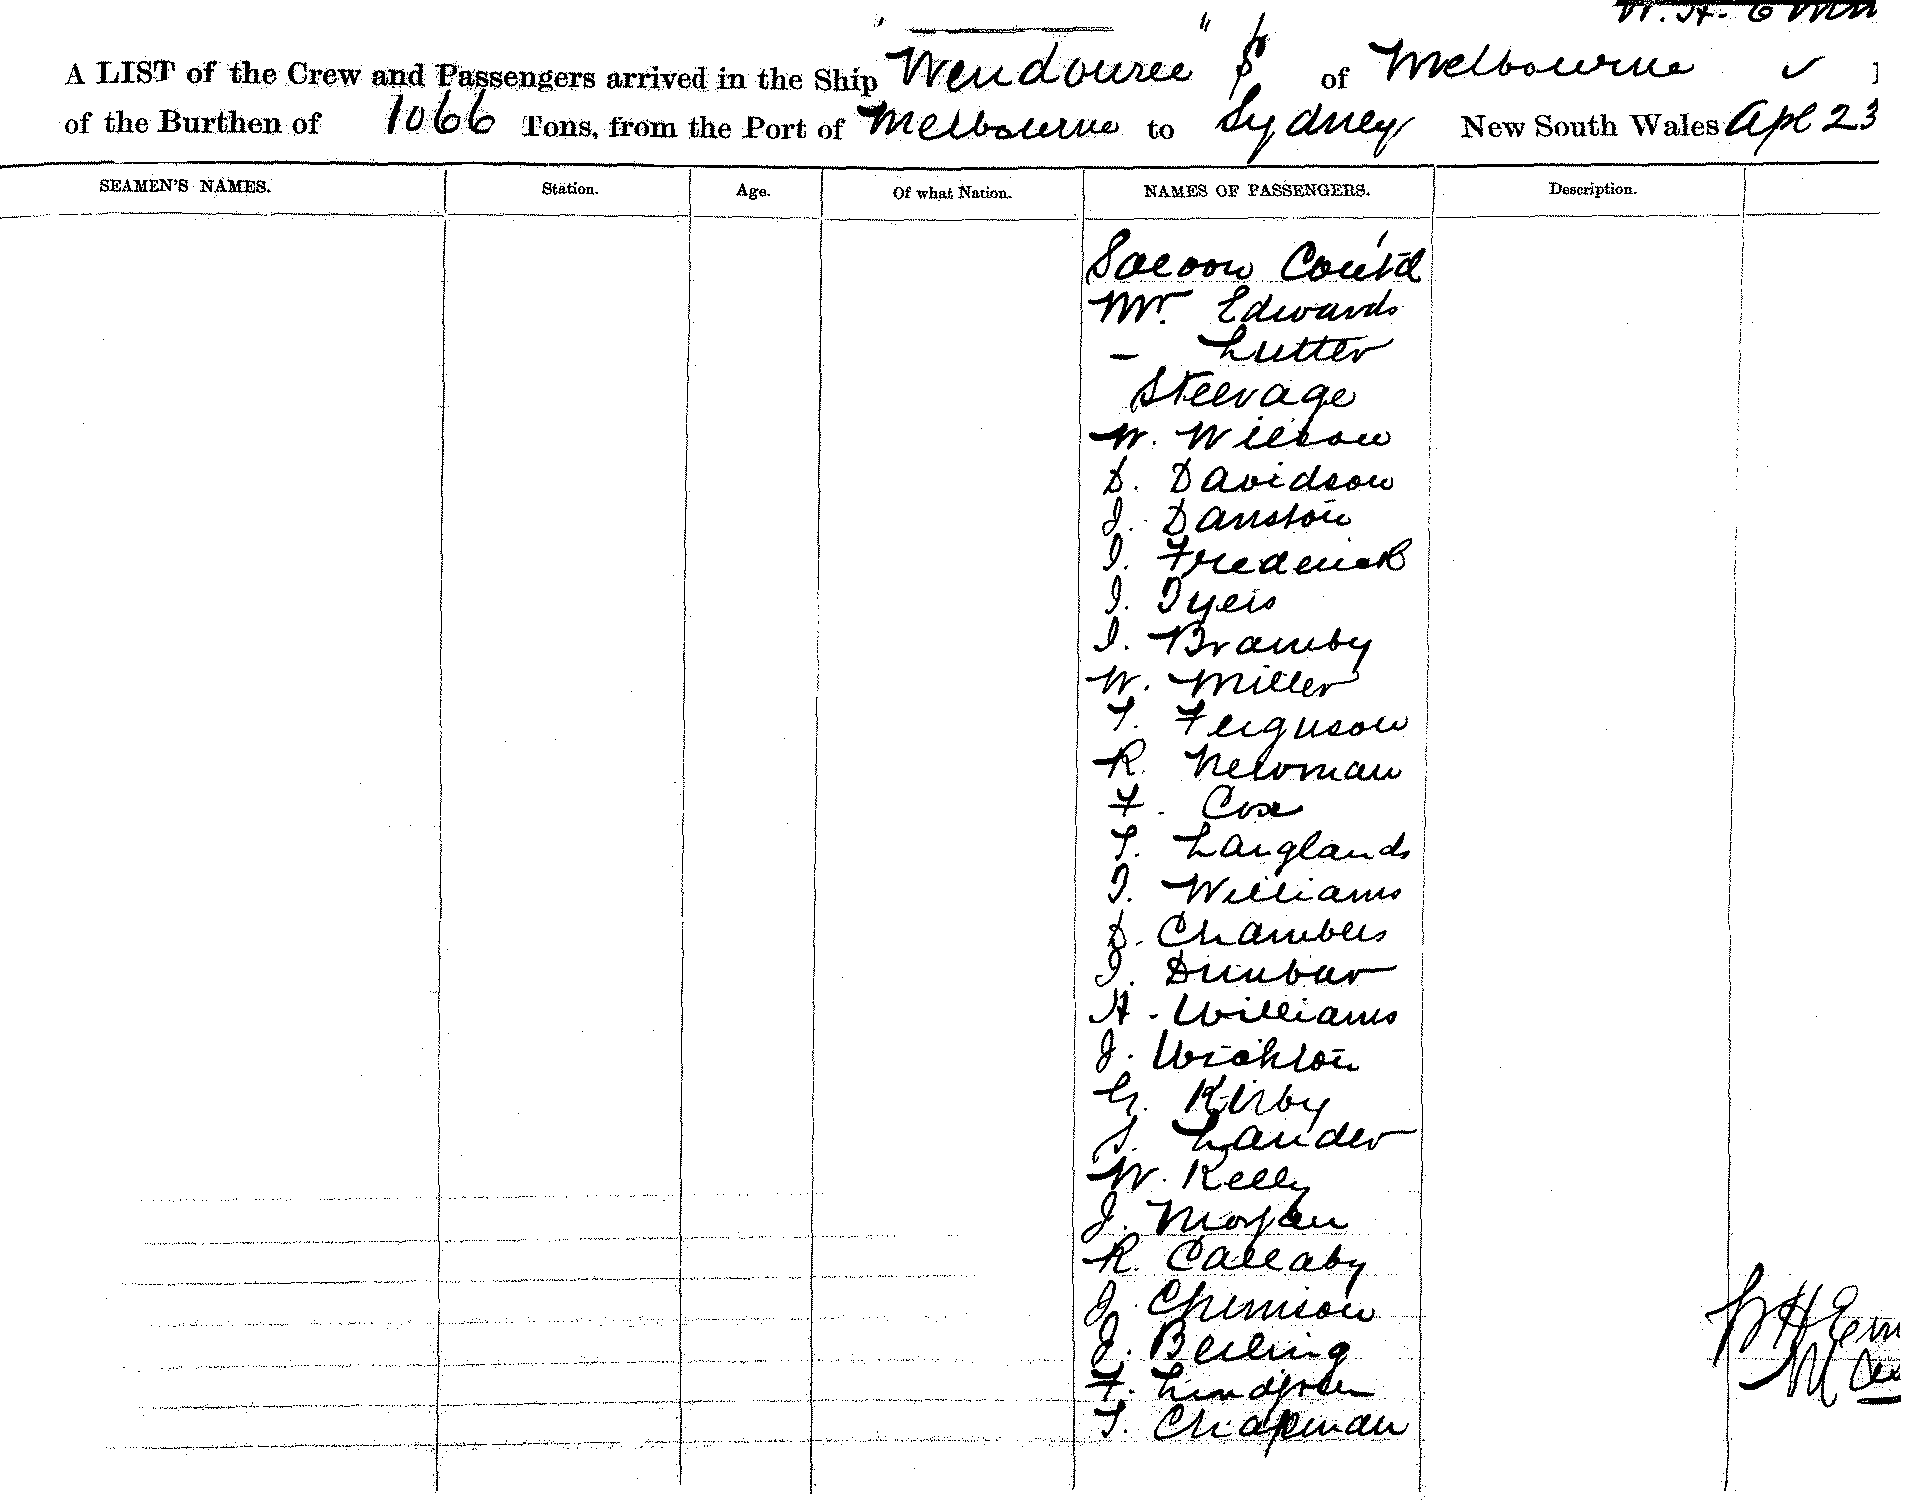 A LIST of the Crew and Passengers arrived in the Ship "Wendouree" of Melbourne
of the Burthen of 1066 Tons, from the Port of Melbourne to Sydney New South Wales Apl 23
SEAMEN'S NAMES. Station. Age. Of what Nation. NAMES OF PASSENGERS. Description.
Saloon Cont'd
Mr. Edwards
- Lutter
Steerage
W. Wilson
D. Davidson
J. Danston
J. Frederick
J. Tyers
J. Bramby
W. Miller
T. Ferguson
R. Newman
F. Cox
T. Langlands
T. Williams
D. Chambers
J. Dunbar
H. Williams
J. Wighton
G. Kirby
S. Lander
W. Kelly
J. Morgan
R. Callaby
J. Chrimson
J. Beiling
F. Lindgren
T. Chapman